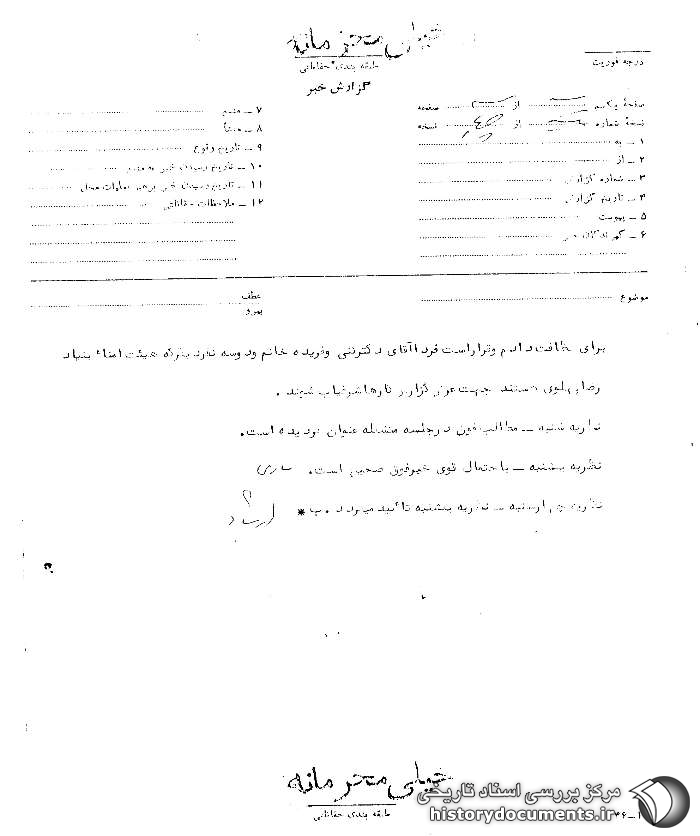 خیلی محرمانه
طبقه بندی حفاظتی
گزارش خبر
درجه فوریت
صفحه یکم از صفحه
نسخه شماره از نسخه
۱ ـ به
۲ ـ از
۳ ـ شماره گزارش
۴ ـ تاریخ گزارش
۵ ـ پیوست
۶ ـ گیرندگان خبر
۷ ـ منبع
۸ ـ منشأ
۹ ـ تاریخ وقوع
۱۰ ـ تاریخ رسیدن خبر به منبع
۱۱ ـ تاریخ رسیدن خبر به رهبر عملیات محل
۱۲ ـ ملاحظات حفاظتی
موضوع
عطف
پیرو
برای نظافت دادم و قرار است فردا آقای دکتر و فریده خانم و دو سه نفر دیگر که هیئت امناء بنیاد
رضا پهلوی هستند جهت برگزار کارها شرفیاب شوند .
نظریه شنبه ـ مطالب فوق در جلسه متشکله عنوان گردیده است.
نظریه یکشنبه ـ باحتمال قوی خبر فوق صحیح است.
نظریه چهارشنبه ـ نظریه یکشنبه تأیید میگردد . ب *
خیلی محرمانه
طبقه بندی حفاظتی
مرکز بررسی اسناد تاریخی
historydocuments.ir